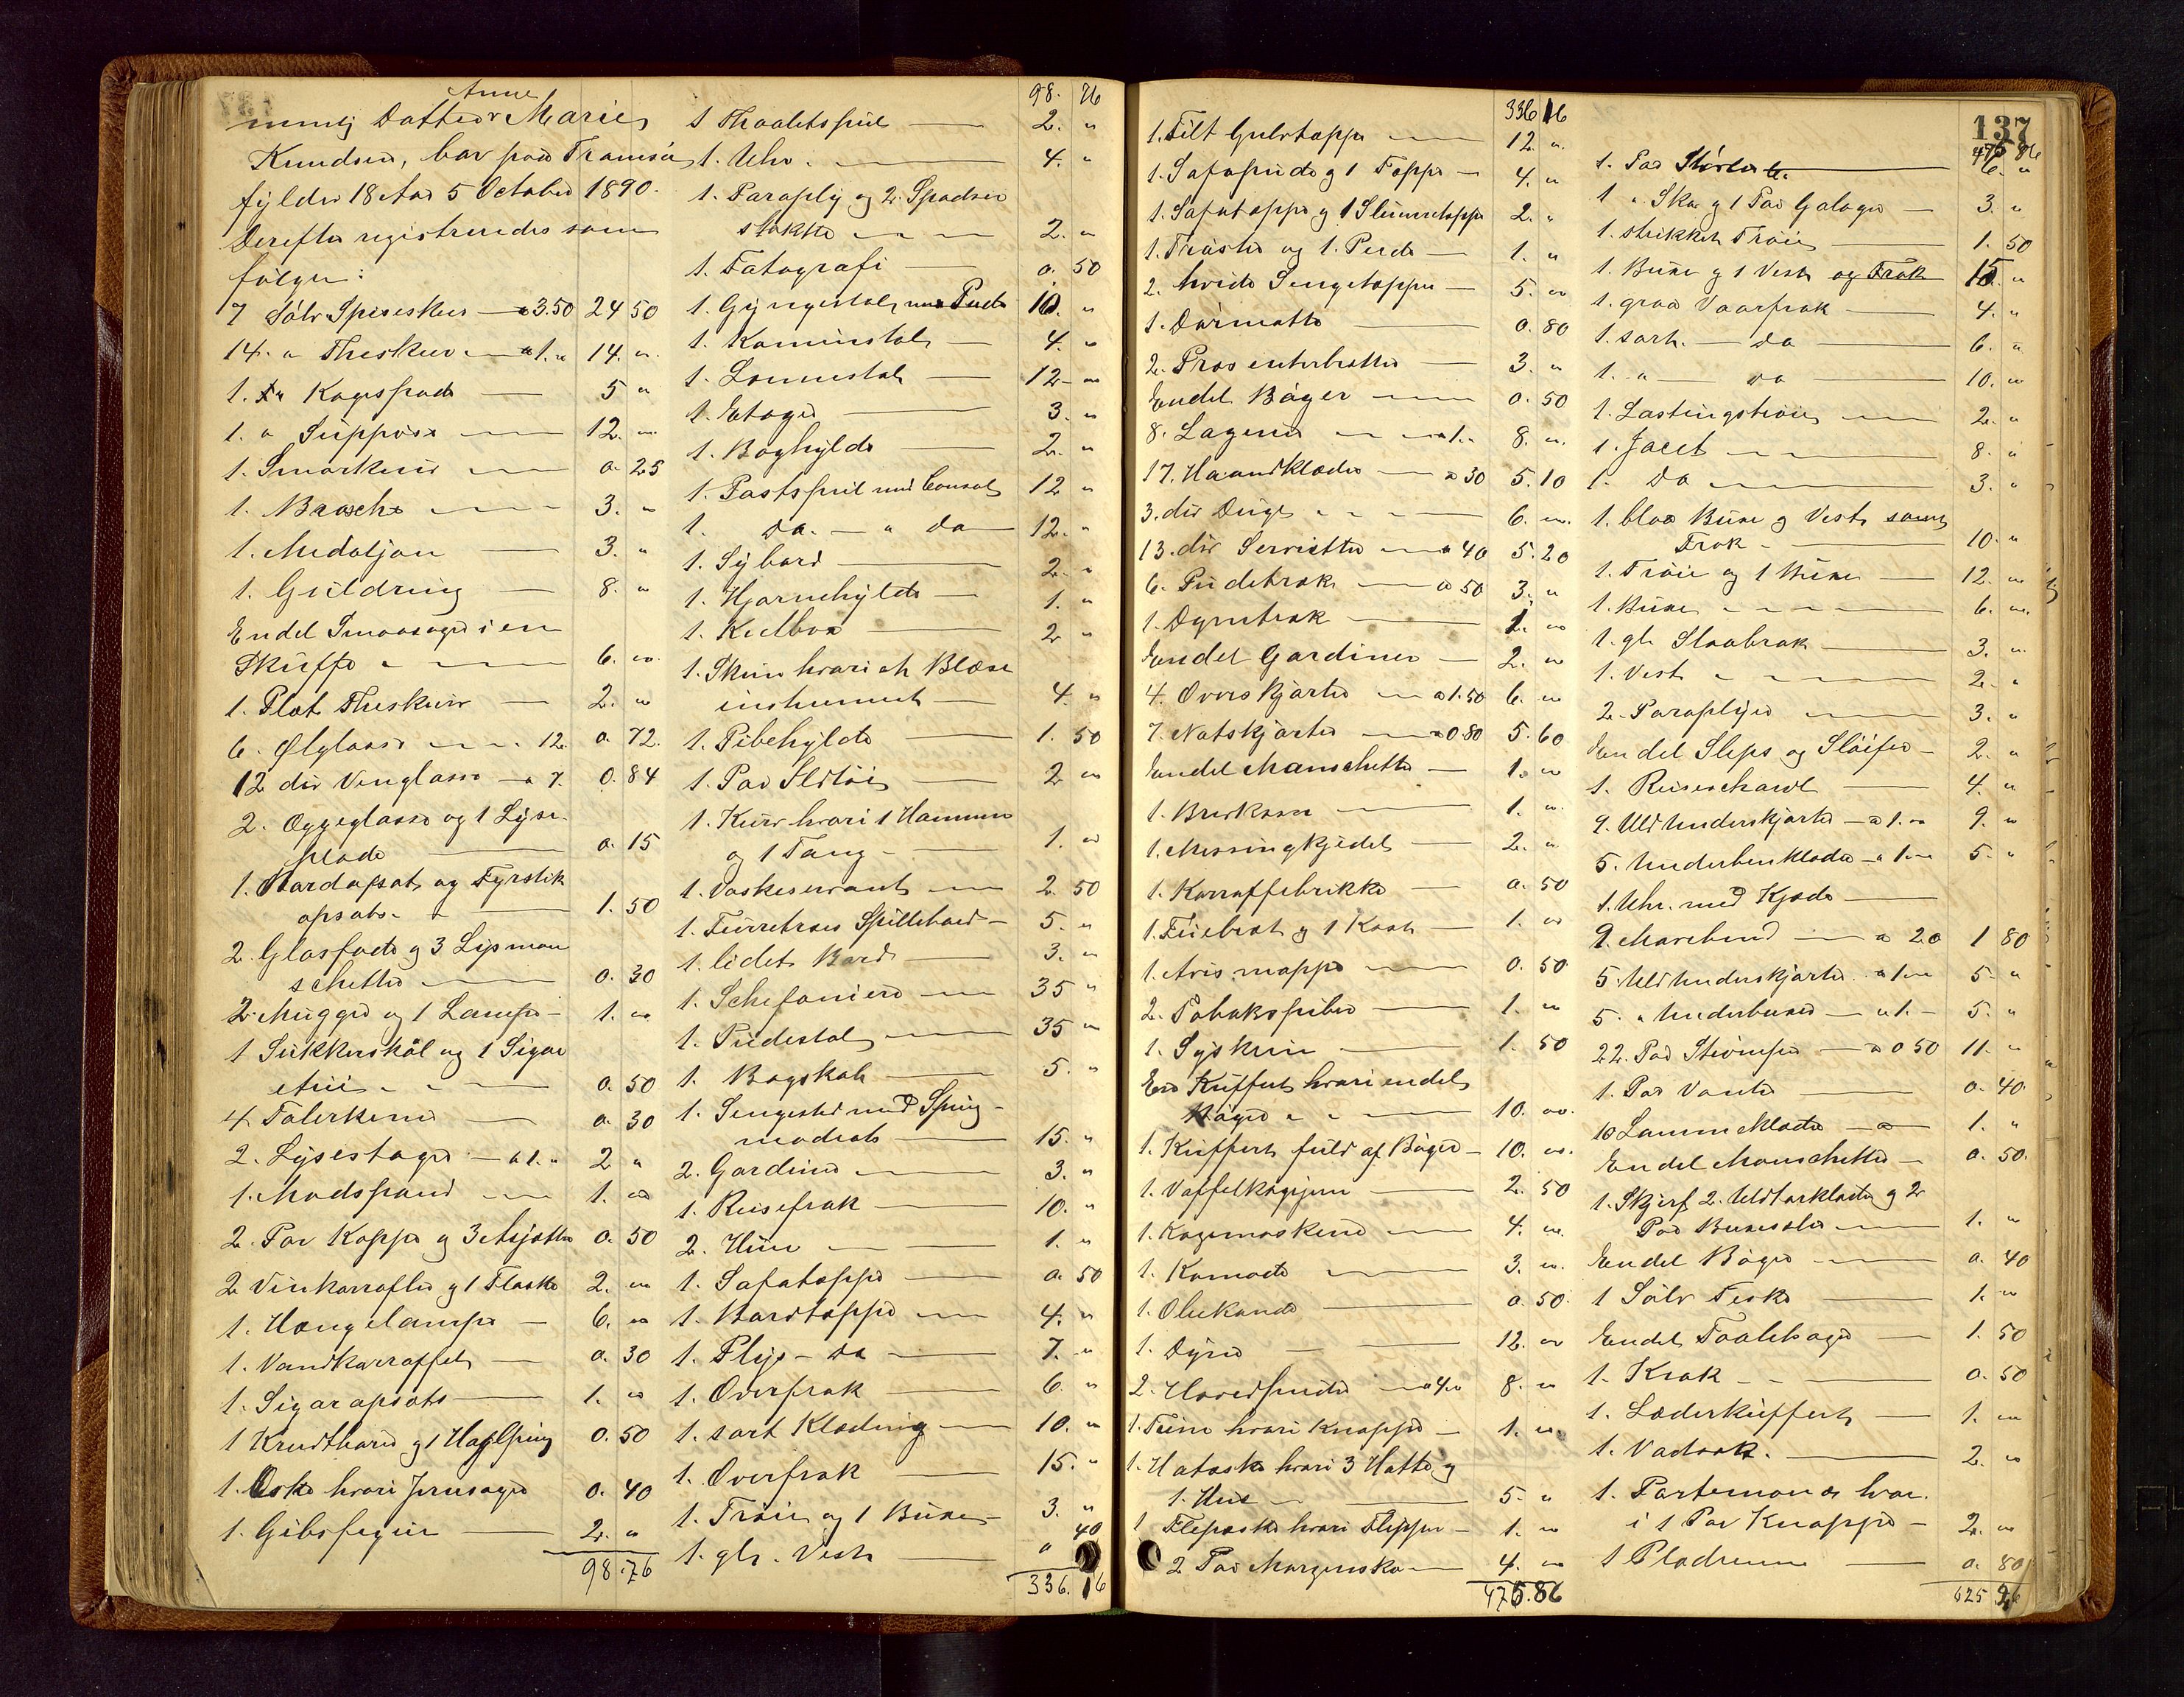 Anne
nemlig Datter Marie
Knudsen, bor paa Tromsø
fylder 18 Aar 5 October 1890.
Derefter registreredes som
følger:
7 Sølv Spiseskeer — a 3.50 24 50
14. " Theskeer — a 1. " 14. "
1. " Kagespade — 5 "
1. " Suppøse — 12. "
1. Smørkniv — 0. 25
1. Broche — 3. "
1. Medaljon — 3. "
1. Guldring — 8. "
Endel Smaasager i en
Skuffe — 6. "
1. Plet Theskeer — 2. "
6. Ølglasse — 12 0. 72.
12 dir Vinglasse — a 7. 0. 84
2. Æggeglasse og 1 Lyse-
plade — 0. 15
1. Bordopsats og Fyrstik
opsats — 1. 50
2. Glasfade og 3 Lysman
schetter — 0. 30
2. Mugger og 1 Lampe — 1. "
1 Sukkerskål og 1 Sigar
etui — 0. 50
4 Tallerkener — 0. 30
2. Lysestager — a 1. " 2 "
1. Madspand — 1. "
2. Par Kopper og 3 Asjetter 0. 50
2 Vinkarafler og 1 Flaske 2. "
1. Hængelampe — 6. "
1. Vandkarraffel — 0. 30
1. Sigaropsats — 1. "
1 Krudthorn og 1 Haglpung 0. 50
1. Æske hvori Jernsager 0. 40
1. Gibsfigur — 2. "
98.76
98. 76
1 Thoaletspeil — 2. "
1. Uhr. — 4. "
1. Paraply og 2. Spadser
stokke — 2. "
1. Fotografi — 0. 50
1. Gyngestol med Pude 10. "
1. Kaminstol — 4. "
1. Lænnestol — 12 "
1. Etager — 3. "
1. Boghylde — 2. "
1. Postspeil med Consol 12 "
1. Do. — " Do 12. "
1. Sybord — 2. "
1. Hjørnehylde — 1. "
1. Kulbox — 2 "
1. Skrin hvori et Blæse
instrument — 4. "
1. Pibehylde — 1. 50
1. Par Ildtøi — 2 "
1. Kurv hvori 1 Hammer
og 1 Tang — 1. "
1. Vaskeservant — 2. 50
1. Furretræes Spillebord — 5. "
1. lidet Bord — 3. "
1. Schefoniere — 35 "
1. Piedestal — 35 "
1. Bogskab — 5. "
1. Sengested med Spring-
madrats — 15. "
2. Gardiner — 3. "
1. Reisefrak — 10. "
2. Huer — 1. "
1. Sofatæppe — 0. 50
1. Bordtæppe — 4. "
1. Plys — Do — 7. "
1. Overfrak — 6 "
1. sort Klædning — 10. "
1. Overfrak — 15. "
1. Trøie og 1 Buxe — 3. "
1. gl. Vest — " 40
336. 16
336 16
1. Filt Gulvtæppe — 12. "
1. Sofapude og 1 Tæppe — 4. "
1. Sofatæppe og 1 Slumretæppe 2. "
1. Trøster og 1. Pude — 1. "
2. hvide Sengetæpper — 5. "
1. Dørmatte — 0. 80
2. Presenterbretter — 3. "
Endel Bøger — 0. 50
8. Lagener — a 1. 8. "
17. Haandklæder — a 30 5. 10
3. dir Duge — 6. "
13. dir Servietter — a 40 5. 20
6. Pudetræk — a 50 3. "
1. Dynetræk — 1. "
Endel Gardiner — 2. "
4. Overskjorter — a 1.50 6. "
7. Natskjorter — a 0.80 5. 60
Endel Manschetter — 1. "
1. — 1. "
1. Messingkjedel — 2. "
1. Karraffebrikke — 0. 50
1. Feiebræt og 1 Kost — 1. "
1. Avismappe — 0. 50
2. Tobakspiber — 1. "
1. Syskrin — 1. 50
En Kuffert hvori endel
Bøger — 10. "
1. Kuffert fuld af Bøger — 10. "
1. Vaffelkagejern — 2. 50
1. Kagemaskine — 4. "
1. Komode — 3. "
1. Oliekande — 0. 50
1. Dyne — 12. "
2. Hovedpuder — a 4. " 8. "
1. Tine hvori Knapper — 1. "
1. Hatæske hvori 3 Hatte og
1. Hue — 5. "
1 Flipæske hvori Flipper — 1. "
2 Par Morgensko — 4. "
475.86
137
475 86
1. Par Støvler — 6. "
1 " Sko og 1 Par Galoger — 3. "
1. strikket Trøie — 1. 50
1. Buxe og 1 Vest og Frak 15. "
1. graa Vaarfrak — 4. "
1. sort. — Do — 6. "
1. " — Do — 10. "
1. Lastingstrøie — 2. "
1. Jacet — 8. "
1. Do — 3. "
1. blaa Buxe og Vest samt
Frak — 10. "
1. Trøie og 1 Buxe — 12. "
1. Buxe — 6. "
1. gl. Slaabrok — 3. "
1. Vest — 2. "
2. Paraplyer — 3. "
Endel Slips og Sløifer — 2. "
1. Reiseschavl — 4. "
9. Uld Underskjorter — a 1. " 9. "
5. Underbenklæder — a 1. " 5. "
1. Uhr. med Kjæde —
9. — a 20 1 80
5 Uld Underskjorter. a 1. " 5. "
5. " Underbuxer — a 1. — 5. "
22. Par Strømper — a 0 50 11. "
1. Par Vanter — 0. 40.
10 Lommeklæder — 1. "
Endel Manschetter — 0. 50.
1. Skjerf 2. Uldtørklæder og 2
Par Buxeseler — 1. "
Endel Bøger — 0. 40
1 Sølv — 1. "
Endel Toaletsager — 1. 50
1. Krak — 0. 50
1. Læderkuffert — 1. "
1. Vadsæk. — 2. "
1. Portemonæ hvor.
i 1 Par Knapper — 2. "
1 Pladrum — 0. 80
625 96